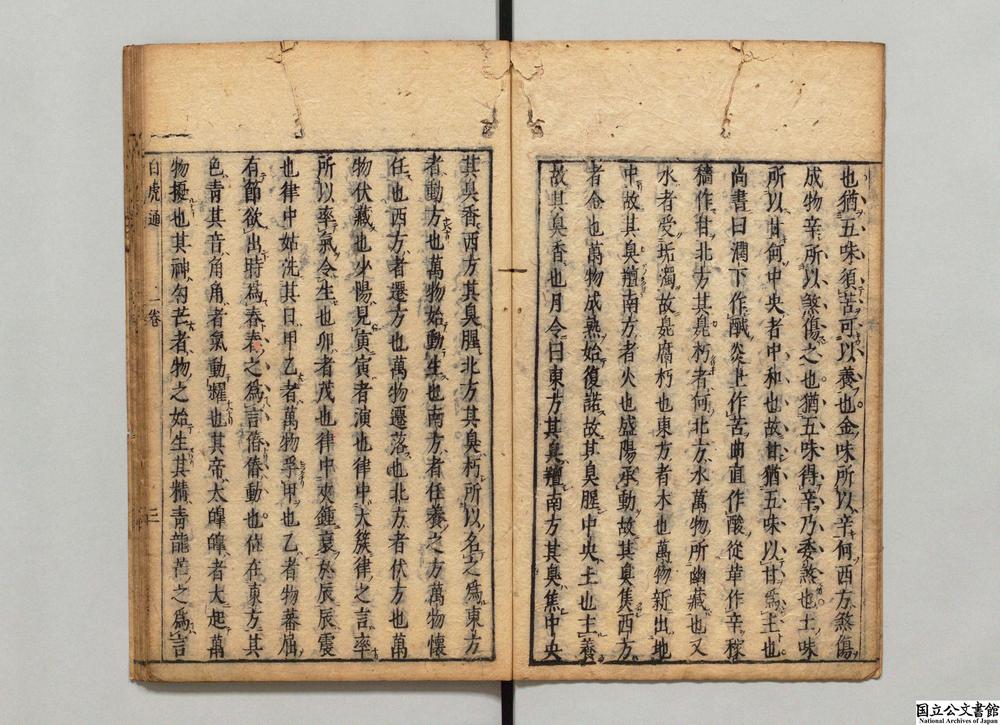 也猶五味須苦可以養也金味所以辛何西方煞傷
成物辛所以煞傷之也猶五味得辛乃委煞也土味
所以甘何中央者中和也故甘猶五味以甘爲主也
尚書曰潤下作醎炎上作苦曲直作酸從革作辛稼
穡作甘北方其臭朽者何北方水萬物所幽藏也又
水者受垢濁故臭腐朽也東方者木也萬物新出地
中故其臭羶南方者火也盛陽承動故其臭焦西方
者金也萬物成熟始復諾故其臭腥中央土也主養
故其臭香也月令曰東方其臭羶南方其臭焦中央
其臭香西方其臭腥北方其臭朽所以名之爲東方
者動方也萬物始動生也南方者任養之方萬物懷
任也西方者遷方也萬物遷落也北方者伏方也萬
物伏藏也少陽見寅寅者演也律中大簇律之言率
所以率氣令生也卯者茂也律中夾鍾衰於辰辰震
也律中姑洗其日甲乙者萬物孚甲也乙者物蕃屈
有節欲出時爲春春之爲言偆偆動也位在東方其
色青其音角角者氣動耀也其帝太皞皞者大起萬
物擾也其神勾芒者物之始生其精青龍芒之爲言
白虎通 二卷 三
国立公文書館
National Archives of Japan